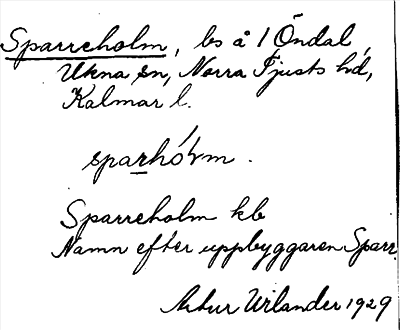 Sparreholm, ls å 1 Öndal,
Ukna sn, Norra Tjusts hd,
Kalmar l.
Sparreholm kb
Namn efter uppbyggaren Sparr
Artur Wilander 1929